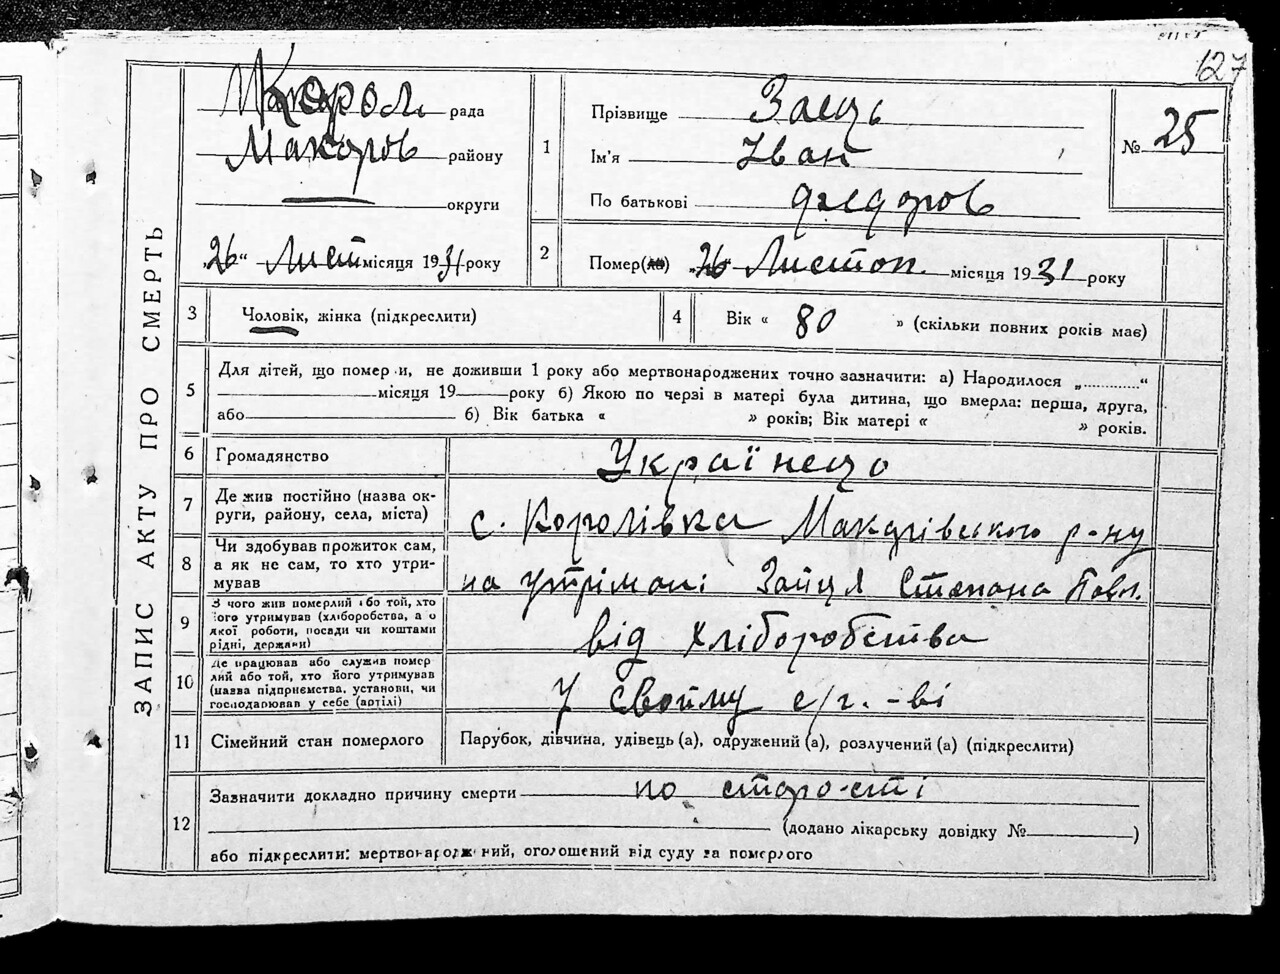 127
ЗАПИС АКТУ ПРО СМЕРТЬ
Корол рада
Макоров району
округи
26" Лист місяця 1931 року
1
Прізвище Заєць
Ім'я Іван
По батькові Федоров
№ 25
2 Помер(ла) "26" Листоп. місяця 1931 року
3 Чоловік, жінка (підкреслити)
4 Вік « 80 » (скільки повних років має)
5 Для дітей, що помер и, не доживши 1 року або мертвонароджених точно зазначити: а) Народилося „.............“
місяця 19 року б) Якою по черзі в матері була дитина, що вмерла: перша, друга,
або б) Вік батька « » років; Вік матері « » років.
6 Громадянство Українець
7 Де жив постійно (назва ок-
руги, району, села, міста)
с. Королівка Макарівського р-ну
8 Чи здобував прожиток сам,
а як не сам, то хто утри-
мував
на утрімані Зайця Степана Павл.
9 З чого жив померлий або той, хто
його утримував (хліборобства, а о
якої роботи, посади чи коштами
рідні, держави)
від хліборобства
10 Де працював або служив помер
лий або той, хто його утримував
(назва підприємства, установи, чи
господарював у себе (артілі)
У свойму с/г.-ві
11 Сімейний стан померлого Парубок, дівчина, удівець (а), одружений (а), розлучений (а) (підкреслити)
12 Зазначити докладно причину смерти по старості
(додано лікарську довідку № )
або підкреслити: мертвонароджений, оголошений від суду за померлого